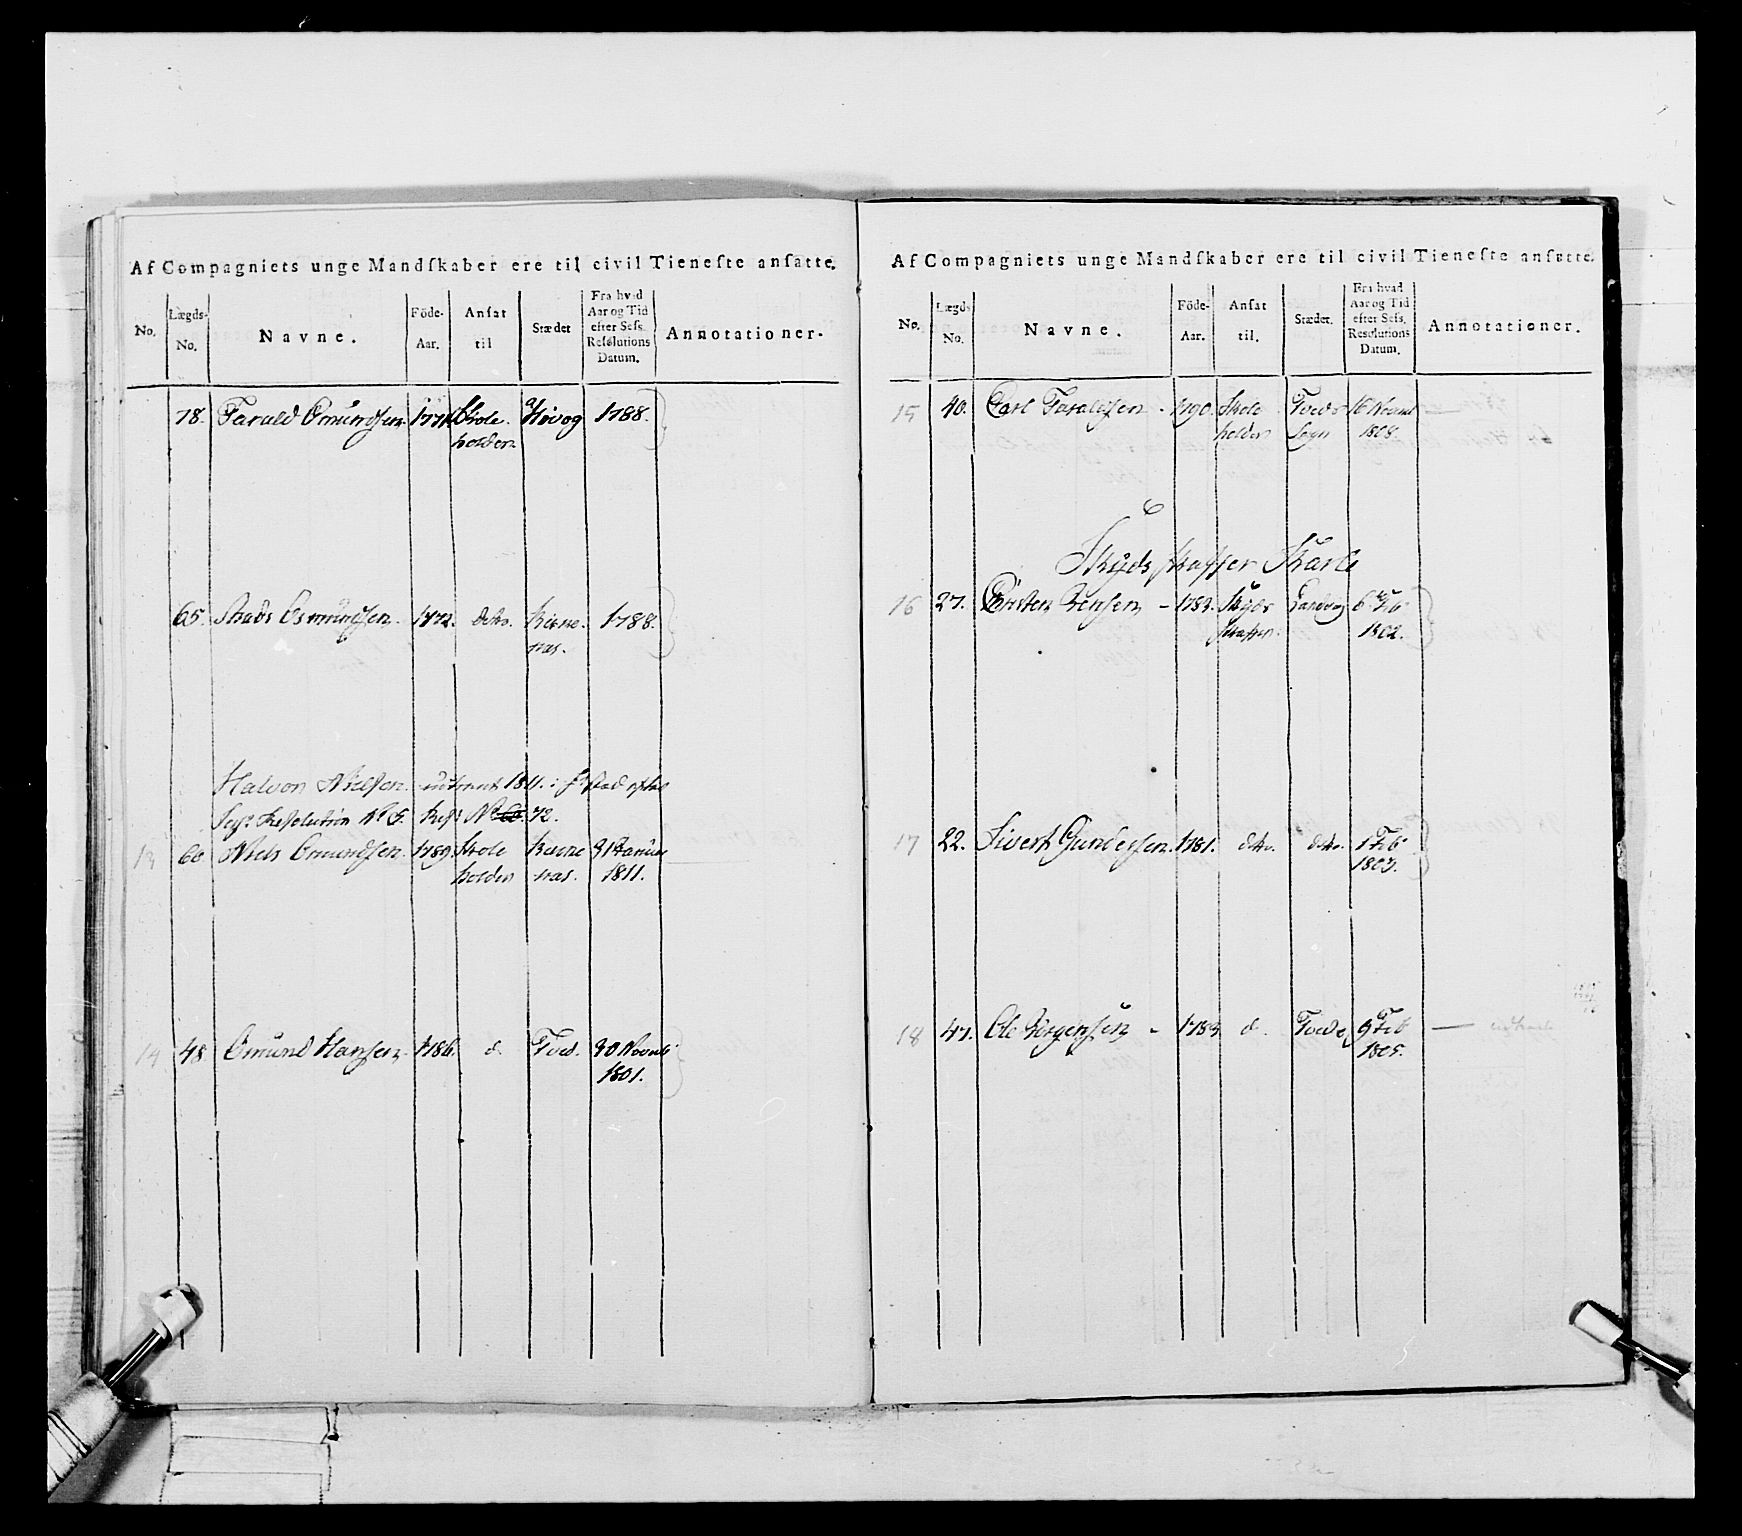 Af Compagniets unge Mandſkaber ere til civil Tieneſte anſatte.
No. Lægds-No. Navne. Föde-Aar. Anſat til Stædet Fra hvad Aar og Tid efter Seſs. Reſolutions Datum. Annotationer.
78. Tarald Omundsen 1771 Skole Høvog 1788.
holder
65. Mads Osmundsen. 1772. dito. Birke 1788.
næs.
Halvor Nielsen
Sess: Resolution No 5. No 72.
13 60 Niels Omundsen. 1789. Skole Birke 31 Januar
holder næs. 1811.
14 48 Omund Hansen. 1786. d. Tved. 30 Novemb
1801.
Af Compagniets unge Mandſkaber ere til civil Tieneſte anſatte.
No. Lægds No. Navne. Föde-Aar. Anſat til. Stædet. Fra hvad Aar og Tid efter Seſs. Reſolutions Datum. Annotationer.
15 40. Carl Taraldsen 1790. Skole Tveds 16 Novemb
holder Sogn 1808.
Skyds skaffer Karle
16 27. Christen Jensen 1783. Skyds Landvig 6 Feb
skaffer. 1802.
17 22. Sivert Gundersen. 1781. dito. dito. 1 Feb
1803.
18 47. Ole Jørgensen 1783 d. Tveds 9 Feb
1805.